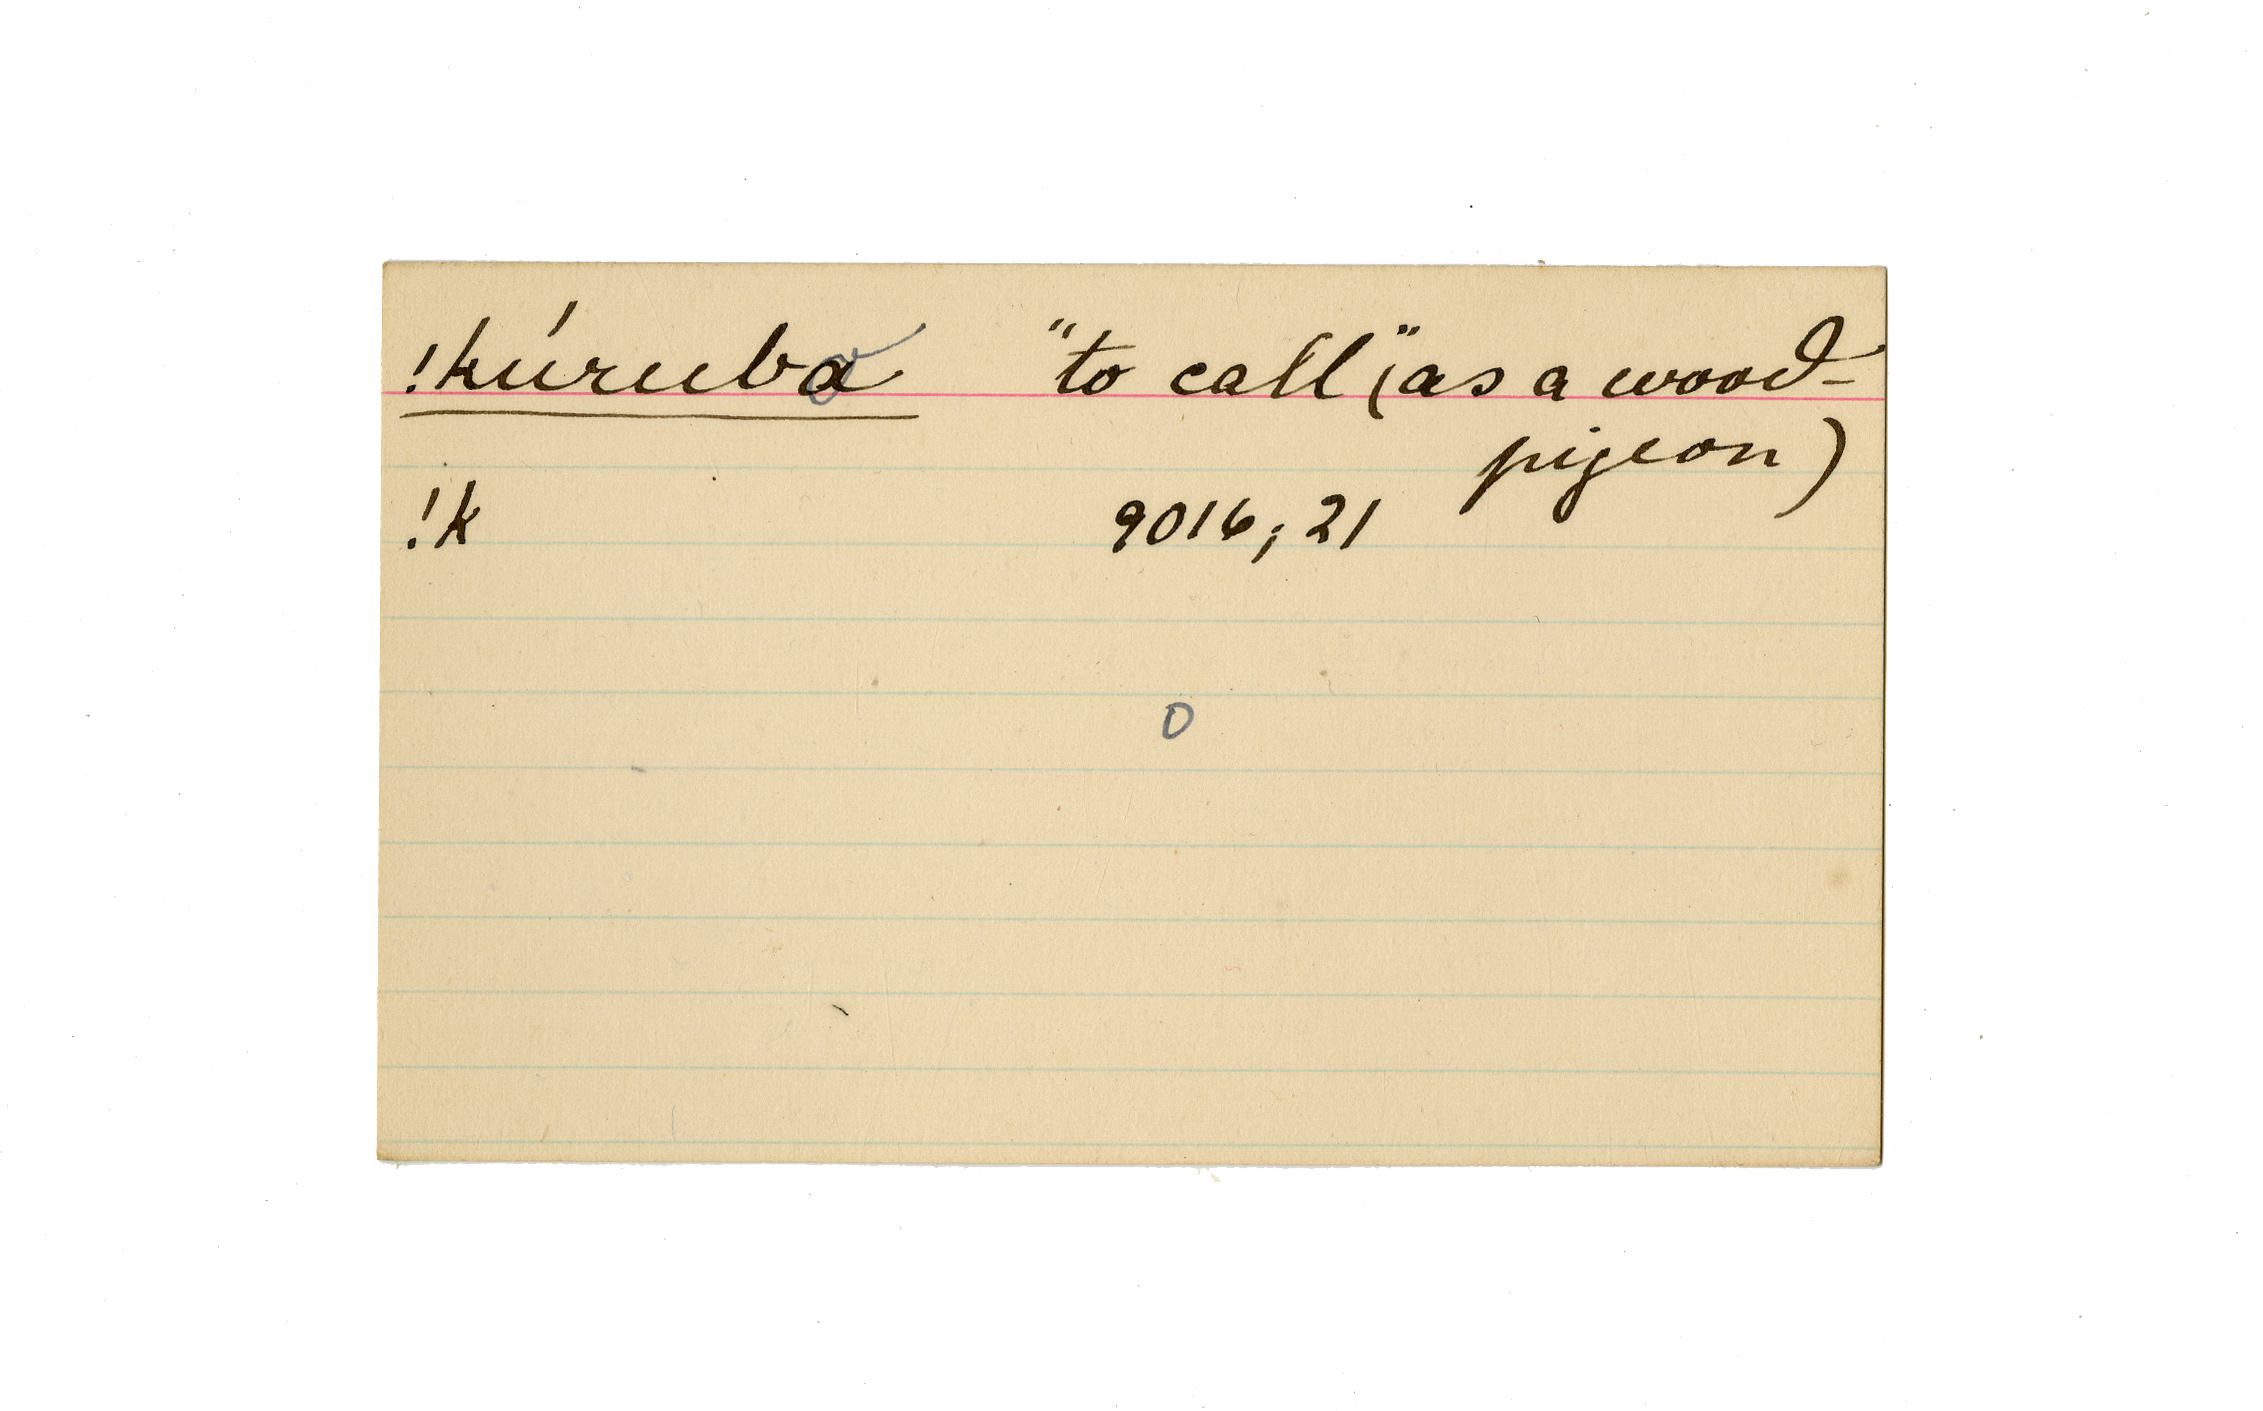 !kúruba "to call" (as a wood-
pigeon)
!k 9016; 21
o